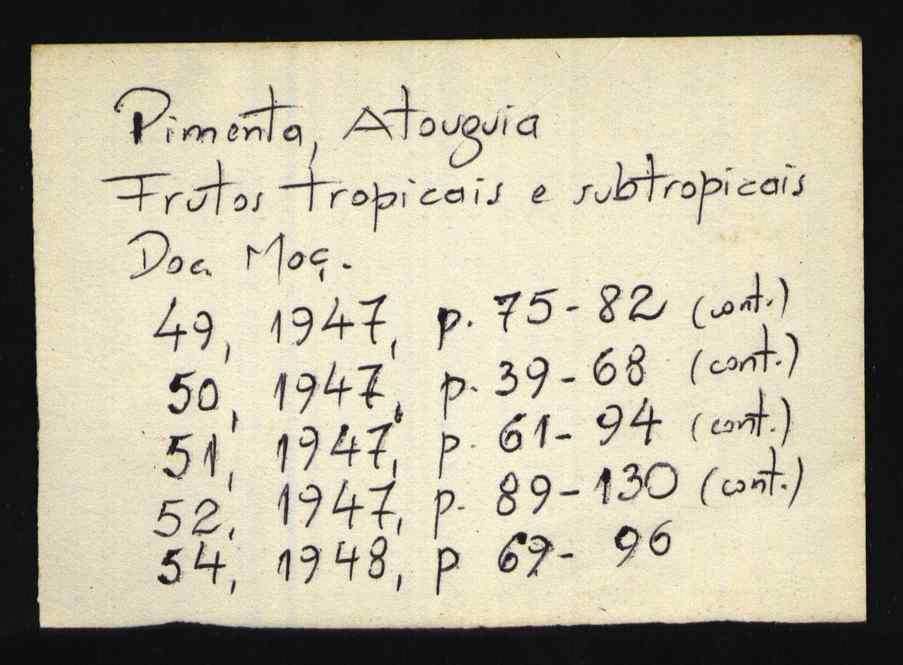 Pimenta, Atouguia
Frutos tropicais e subtropicais
Doc. Moç.
49, 1947, p. 75-82 (cont.)
50, 1947, p. 39-68 (cont.)
51, 1947, p. 61-94 (cont.)
52, 1947, p. 89-130 (cont.)
54, 1948, p 69- 96